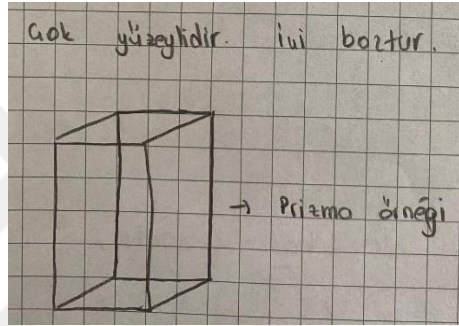 Çok yüzeylidir. İçi boştur.
→ Prizma örneği